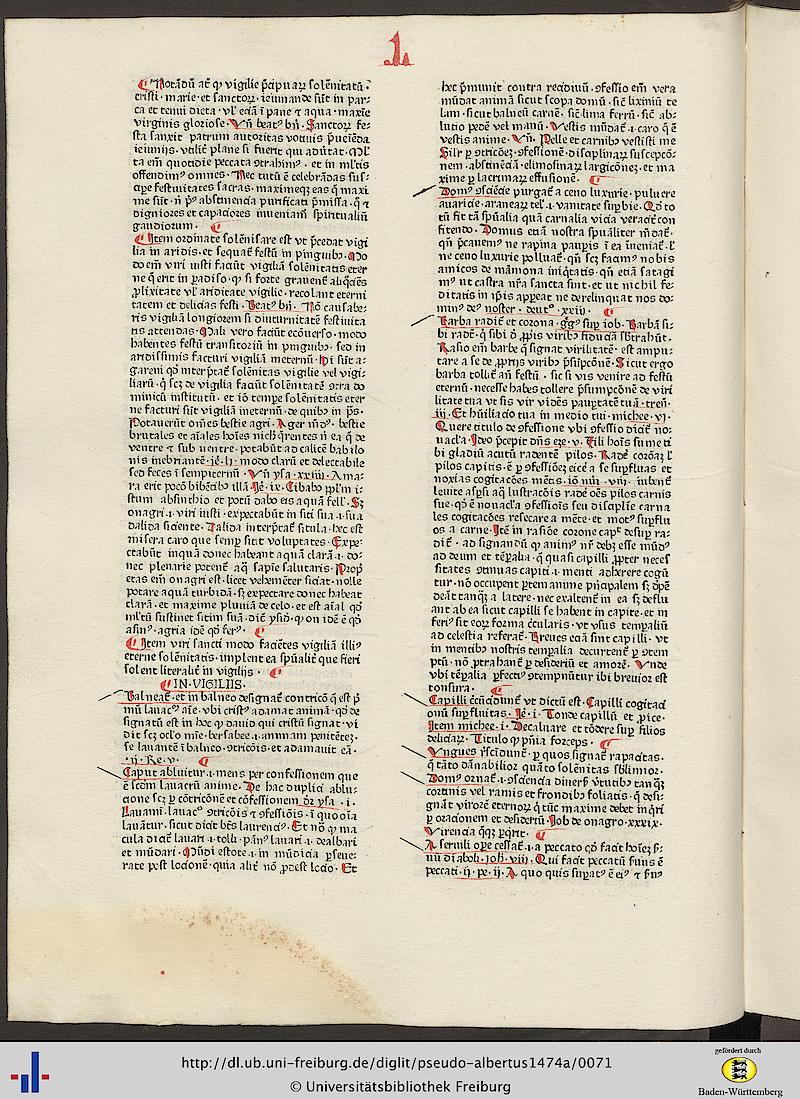 1
Notādū at̄ q̄ vigilie p̄cipuaꝝ solēnitatū ·
cristi · marie · et sanctoꝝ · ieiunande sūt in par⸗
ca et tenui dieta · vl̓ eciā ī pane ⁊ aqua · maxīe
virginis gloriose · Vn̄ beatꝰ bn̄ · Sanctoꝝ fe⸗
sta sanxit patrum autoritas votiuis
ieiunijs · vtilit̄ plane si fuerit qui adūtat · Ml̓
ta em̄ quotidie peccata ꝯtrahimꝰ · et in ml̓tis
offendimꝰ omnes · Nec tutū ē celebrādas sus⸗
cipe festiuitates sacras · maximeqꝫ eas q̄ maxi
me sūt · n̄ pꝰ abstinencia purificati p̄missa · q̄ ⁊
digniores et capaciores inueniam̄ spiritualiū
gaudiorum ·
Item ordinate solēnisare est vt p̄cedat vigi
lia in aridis · et sequat̄ festū in pinguibꝰ · Mo
do em̄ viri iusti faciūt vigiliā solēnitatis eter
ne q̄ erit in ꝑadiso · q̄ si forte grauent̄ aliqūēs
ꝓlixitate vl̓ ariditate vigilie · recolant eterni
tatem et delicias festi · Beatꝰ bn̄ · Nō causabe⸗
ris vigiliā longiorem si diuturnitatē festiuita
tis attendas · Mali vero faciūt ecōuerso · modo
habentes festū transitoriū in pinguibꝰ · sed in
aridissimis facturi vigiliā eternū · Hi sūt a⸗
gareni qd̓ interp̄tat̄ solēnitas vigilie vel vigi⸗
liarū · q̄ scꝫ de vigilia faciūt solēnitatē ꝯtra do
minicū institutū · et iō tempe solēnitatis eter
ne facturi sūt vigiliā in eternū · de quibꝰ in p̄s ·
Potauerūt om̄es bestie agri · Ager mūdꝰ · bestie
brutales et aīales hoīes nich̄ q̄rentes n̄ ea q̄ de
ventre ⁊ sub ventre · potabūt ad calicē babilo
nis inebriantē · ie · li · modo clarū et delectabile
sed feces ī sempiternū · Vn̄ ysa · xxiiij · Ama⸗
ra erit pocō bibētibꝰ illā · Ie · ix · Cibabo ppl̓m i⸗
stum absinthio et potū dabo eis aquā fell̓ · Sꝫ
onagri · i · viri iusti · expectabūt in siti sua · i · sua
dalida siciente · Dalida interp̄tat̄ situla · hec est
misera caro que semp sitit voluptates · Expe⸗
ctabūt inquā donec habeant aquā clarā · i · do⸗
nec plenarie potent̄ aq̄ sapīe salutaris · Propⁱ
etas em̄ onagri est · licet vehemēter siciat · nolle
potare aquā turbidā · sꝫ expectare donec habeat
clarā · et maxime pluuiā de celo · et est aīal qd̓
ml̓tū sustinet sitim suā · dic̄ ysiō · q̄ on idē ē qd̓
asinꝰ · agria idē qd̓ ferꝰ ·
Item viri sancti modo faciētes vigiliā illiꝰ
eterne solēnitatis · implent ea spūalit̄ que fieri
solent literalit̄ in vigilijs ·
IN · VIGILIIS ·
Balneat̄ · et in balneo designat̄ contricō q̄ est p̄
mū lauacꝰ aīe · vbi cristꝰ adamat animā · qd̓ de
signatū est in hoc q̄ dauid qui cristū signat · vi
dit scꝫ ocl̓o mīe · bersabee · i · animam penitētēꝫ ·
se lauantē ī balneo · ꝯtricōīs · et adamauit eā ·
· ij · Re · v ·
Caput abluitur · i · mens per confessionem que
ē scd̄m lauacrū anime · De hac duplici ablu⸗
cione scꝫ ꝑ cōtricōnē et cōfessionem dr̄ ysa · i ·
Lauami · lauacꝰ ꝯtricōīs ⁊ ꝯfessiōīs · ī quo oīa
lauātur · sicut dicit bt̄s laurenciꝰ · Et nō q̄ ma
cula dicat̄ lauari · s · tolli · pānꝰ lauari · i · dealbari
et mūdari · Mūdi estote · i · in mūdicia ꝑseue⸗
rate post locionē · quia alit̄ nō ꝓdest locio · Et
hec p̄munit contra recidiuū · ꝯfessio em̄ vera
mūdat animā sicut scopa domū · sic̄ lixiuiū te
lam · sicut balneū carnē · sic̄ lima ferrū · sic̄ ab⸗
lutio pedē vel manū · Vestis mūdat̄ · i · caro q̄ ē
vestis anime · Vn̄ · Pelle et carnibꝰ vestisti me
Silr̄ ꝑ ꝯtricōeꝫ · ꝯfessionē · disciplinaꝝ suscepcō⸗
nem · abstinenciā · elimosinaꝝ largicōneꝫ · et ma
xime ꝑ lacrimaꝝ effusionē ·
Domꝰ ꝯsciēcie purgat̄ a ceno luxurie · puluere
auaricie · araneaꝝ tel̓ · i · vanitate supbie · Qd̓ to
tū fit tā spūalia quā carnalia vicia veracit̄ con
fitendo · Domus etiā nostra spūaliter mūdat̄ ·
qn̄ p̄cauemꝰ ne rapina paupis ī ea īueniat̄ · l̓
ne ceno luxurie polluat̄ · qn̄ scꝫ facimꝰ nobis
amicos de māmona iniq̄tatis · qn̄ etiā satagi
mꝰ ut castra nr̄a sancta sint · et ut nichil fe⸗
ditatis in ip̄is appeat ne derelinquat nos do⸗
minꝰ deꝰ noster · deutᵒ · xxiij ·
Barba radit̄ et corona · g̓gꝰ sup iob · Barbā si⸗
bi radit̄ · q̄ sibi d̓ ꝓp̄iis viribꝰ fiduciā sb̄trahūt ·
Rasio em̄ barbe q̄ signat virilitatē · est ampu⸗
tare a se de ꝓp̄iis viribꝰ p̄sūpcōnē · Sicut ergo
barba tollit̄ an̄ festū · sic si vis venire ad festū
eternū · necesse habes tollere p̄sumpcōnē de viri
litate tua vt sis vir vidēs paupertatē tuā · tren̄ ·
iij · Et hūiliacio tua in medio tui · michee · vi ·
Quere titulo de ꝯfessione vbi ꝯfessio dicit̄ no⸗
uacl̓a · Ideo p̄cepit dn̄s eze · v · Fili hoīs sume ti
bi gladiū acutū radentē pilos · Rade coronā ꝫ l̓
pilos capitis · ē ꝑ ꝯfessiōeꝫ eice a se supfluas et
noxias cogitacōes mētis · iō nūi · viij · iubent̄
leuite aspsi aq̄ lustracōīs rade oēs pilos carnis
sue · qd̓ ē nouacl̓a ꝯfessiōīs seu discipl̄e carna
les cogitacōes resecare a mēte · et motꝰ supflu
os a carne · Itē in rasiōe corone capᵗ desup ra⸗
dit̄ · ad signandū q̄ animꝰ nr̄ debꝫ esse mūdꝰ
ad deum et tēꝑalia · q̄ quasi capilli ꝓpter neces
sitates ꝯtinuas capiti · i · menti adherere cogū
tur · nō occupent ꝑtem anime p̄ncipalem sꝫ dpē
deāt tanqꝫ a latere · nec exaltent̄ in ea sꝫ deflu
ant ab ea sicut capilli se habent in capite · et in
feriꝰ sit eoꝝ forma circularis · vt vsus tempaliū
ad celestia referat̄ · Breues eciā sint capilli · vt
in mentibꝰ nostris tempalia decurtent̄ ꝑ ꝯtem
ptū · nō ꝓtrahant̄ ꝑ desideriū et amorē · Vnde
vbi tēpalia ꝑfectiꝰ ꝯtempnūtur ibi breuior est
tonsura ·
Capilli circūcidunt̄ vt dictū est · Capilli cogitaci
onū supfluitas · Ie · i · Tonde capillū et ꝓice ·
Item michee · i · Decaluare et tōdere sup filios
deliciaꝝ · Titulo q̄ pn̄ia forceps ·
Vngues rescidunt̄ · ꝑ quos signat̄ rapacitas ·
q̄ tāto dānabilior quāto solēnitas sb̄limor ·
Domꝰ ornat̄ · i · ꝯsciencia diuersꝭ v̓tutibꝰ tanqꝫ
cortinis vel ramis et frondibꝰ foliatis · q̄ desi⸗
gnāt virorē eternoꝝ q̄ tūc maxime debet inq̓ri
ꝑ oracionem et desideriū · Iob de onagro · xxxix ·
Virencia q̄qꝫ ꝑq̓rit ·
A seruili ope cessat̄ · i · a peccato qd̓ facit hoīeꝫ s̓⸗
uū diaboli · ioh̄ · viij · Qui facit peccatū seruꝰ ē
peccati · ij · pe · ij · A quo quis supatꝰ ē eiꝰ ⁊ s̓uꝰ
http://dl.ub.uni-freiburg.de/diglit/pseudo-albertus1474a/0071
© Universitätsbibliothek Freiburg
gefördert durch
Baden-Württemberg